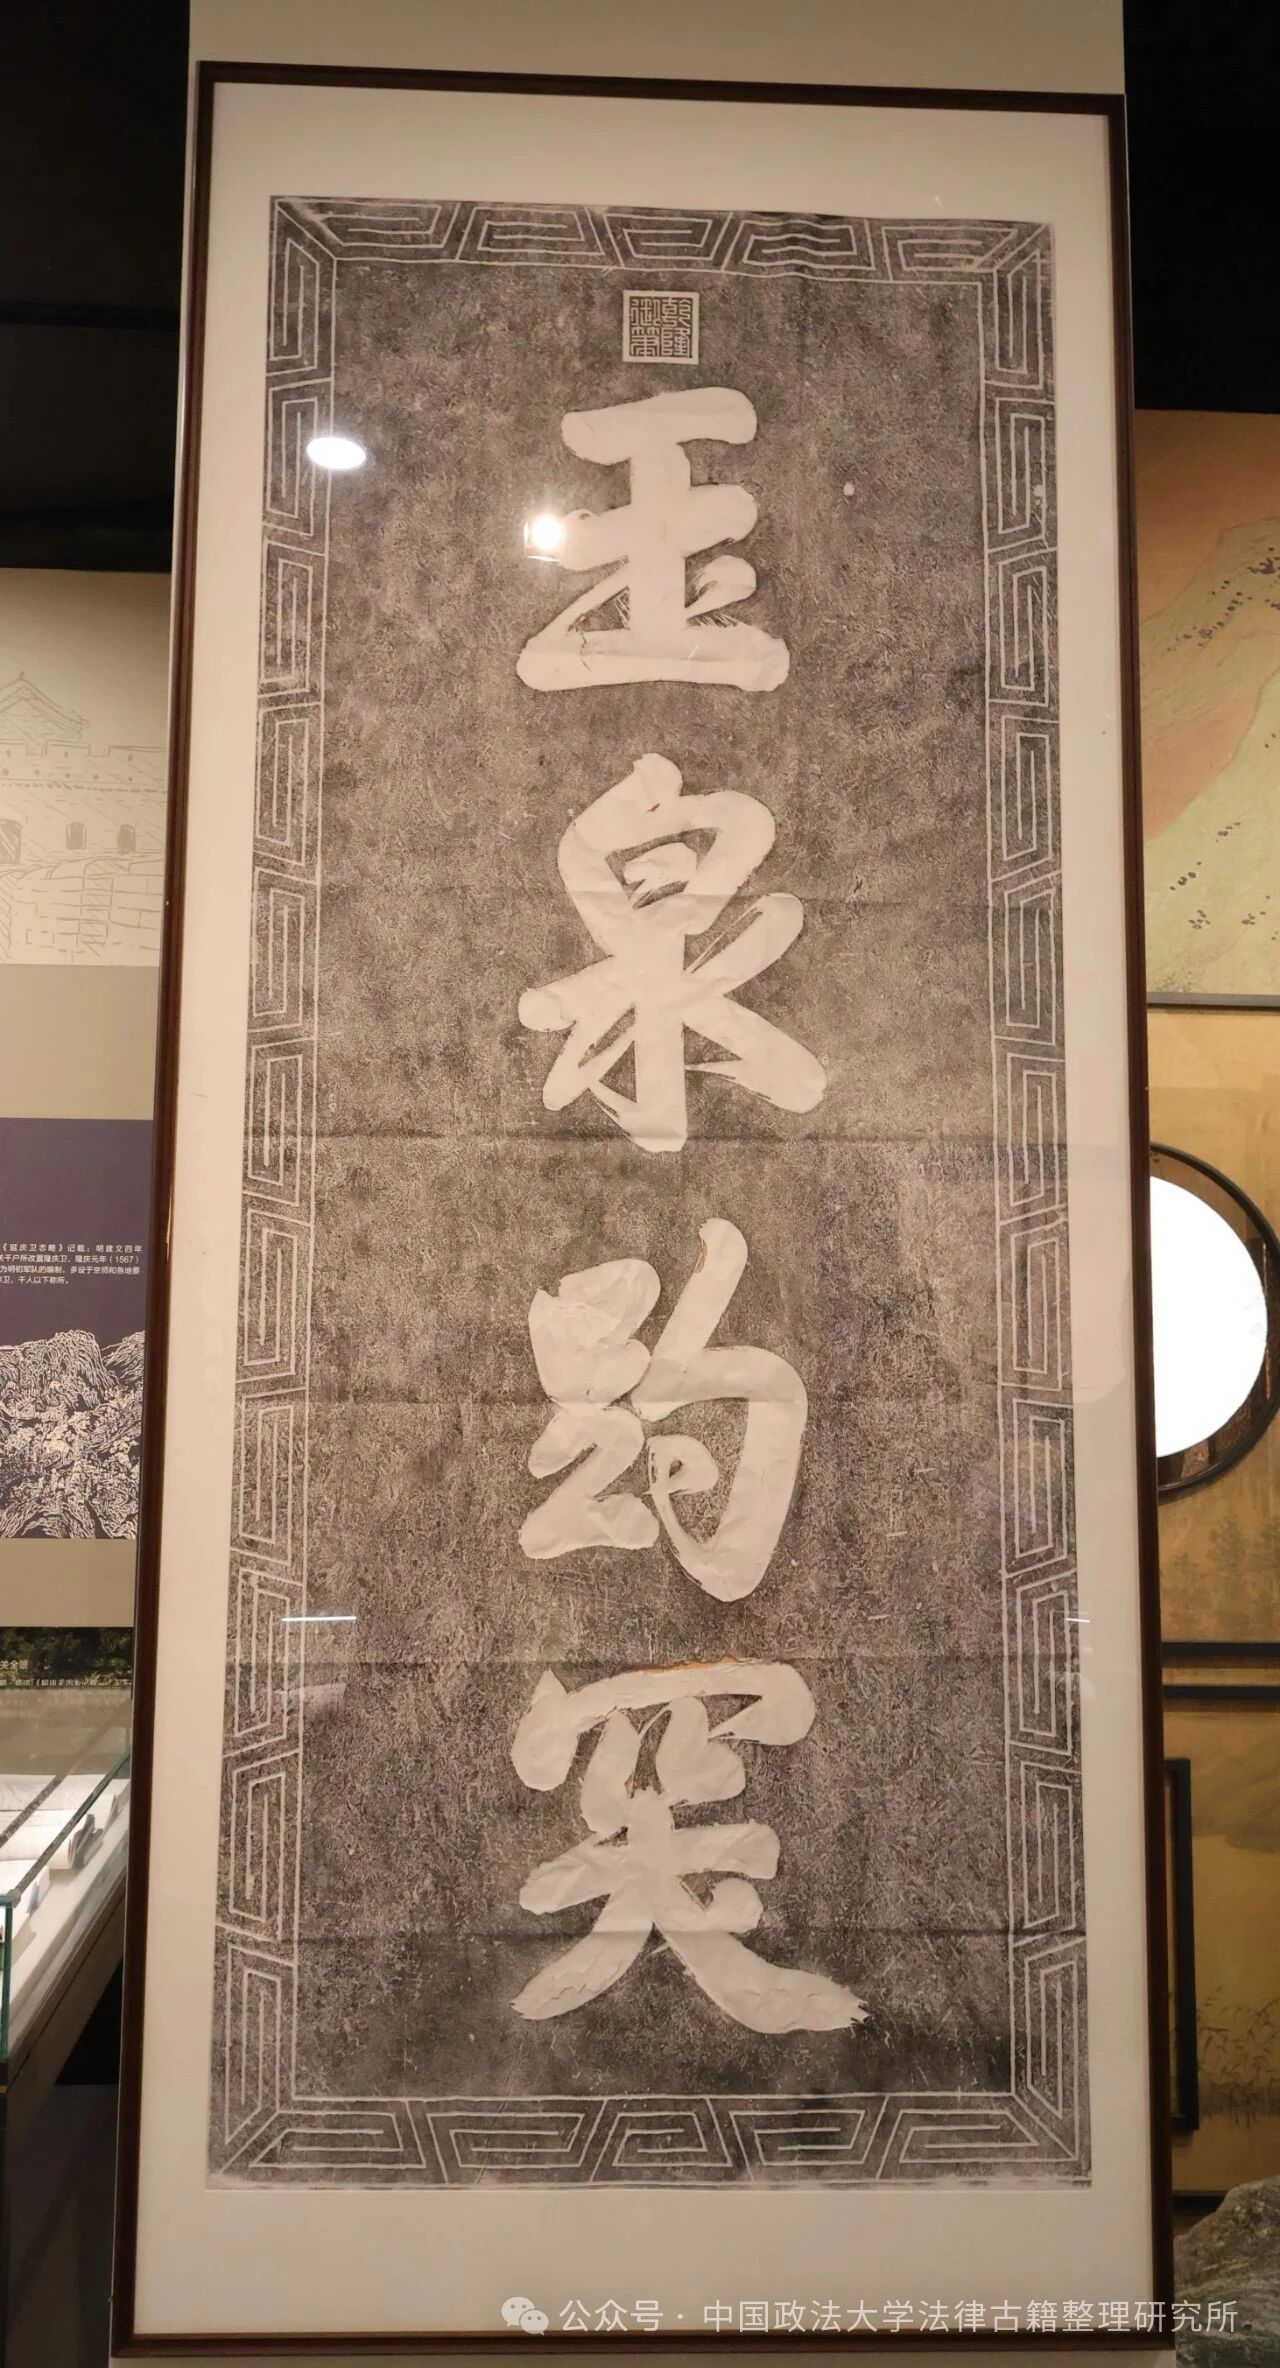 乾隆
御筆
玉泉趵突
《延庆卫志略》记载：明建文四年
关千户所改置隆庆卫，隆庆元年（1567）
为明初军队的编制，多设于京师和各地要
卫，千人以下称所。
关全景
公众号 · 中国政法大学法律古籍整理研究所